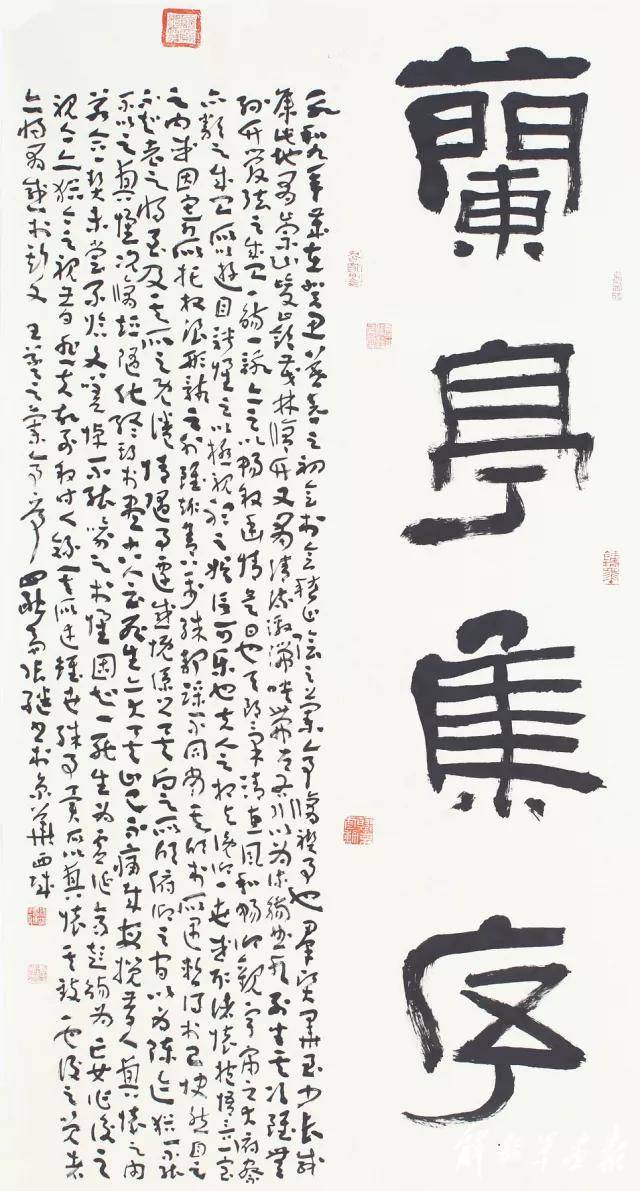 蘭亭集序
永和九年歲在癸丑暮春之初會於會稽山陰之蘭亭脩禊事也羣賢畢至少長咸
集此地有崇山峻領茂林脩竹又有清流激湍暎帶左右引以為流觴曲水列坐其次雖無
絲竹管弦之盛一觴一詠亦足以暢敘幽情是日也天朗氣清惠風和暢仰觀宇宙之大俯察
品類之盛所以遊目騁懷足以極視聽之娛信可樂也夫人之相與俯仰一世或取諸懷抱悟言一室
之內或因寄所託放浪形骸之外雖趣舍萬殊靜躁不同當其欣於所遇暫得於己快然自足
不知老之將至及其所之既惓情隨事遷感慨係之矣向之所欣俯仰之間以為陳迹猶不能
不以之興懷況脩短隨化終期於盡古人云死生亦大矣豈不痛哉每攬昔人興懷之由
若合一契未嘗不臨文嗟悼不能喻之於懷固知一死生為虛誕齊彭殤為妄作後之
視今亦猶今之視昔悲夫故列敘時人錄其所述雖世殊事異所以興懷其致一也後之覽者
亦將有感於斯文 王羲之蘭亭序 張繼書於京華西城
解放军画报